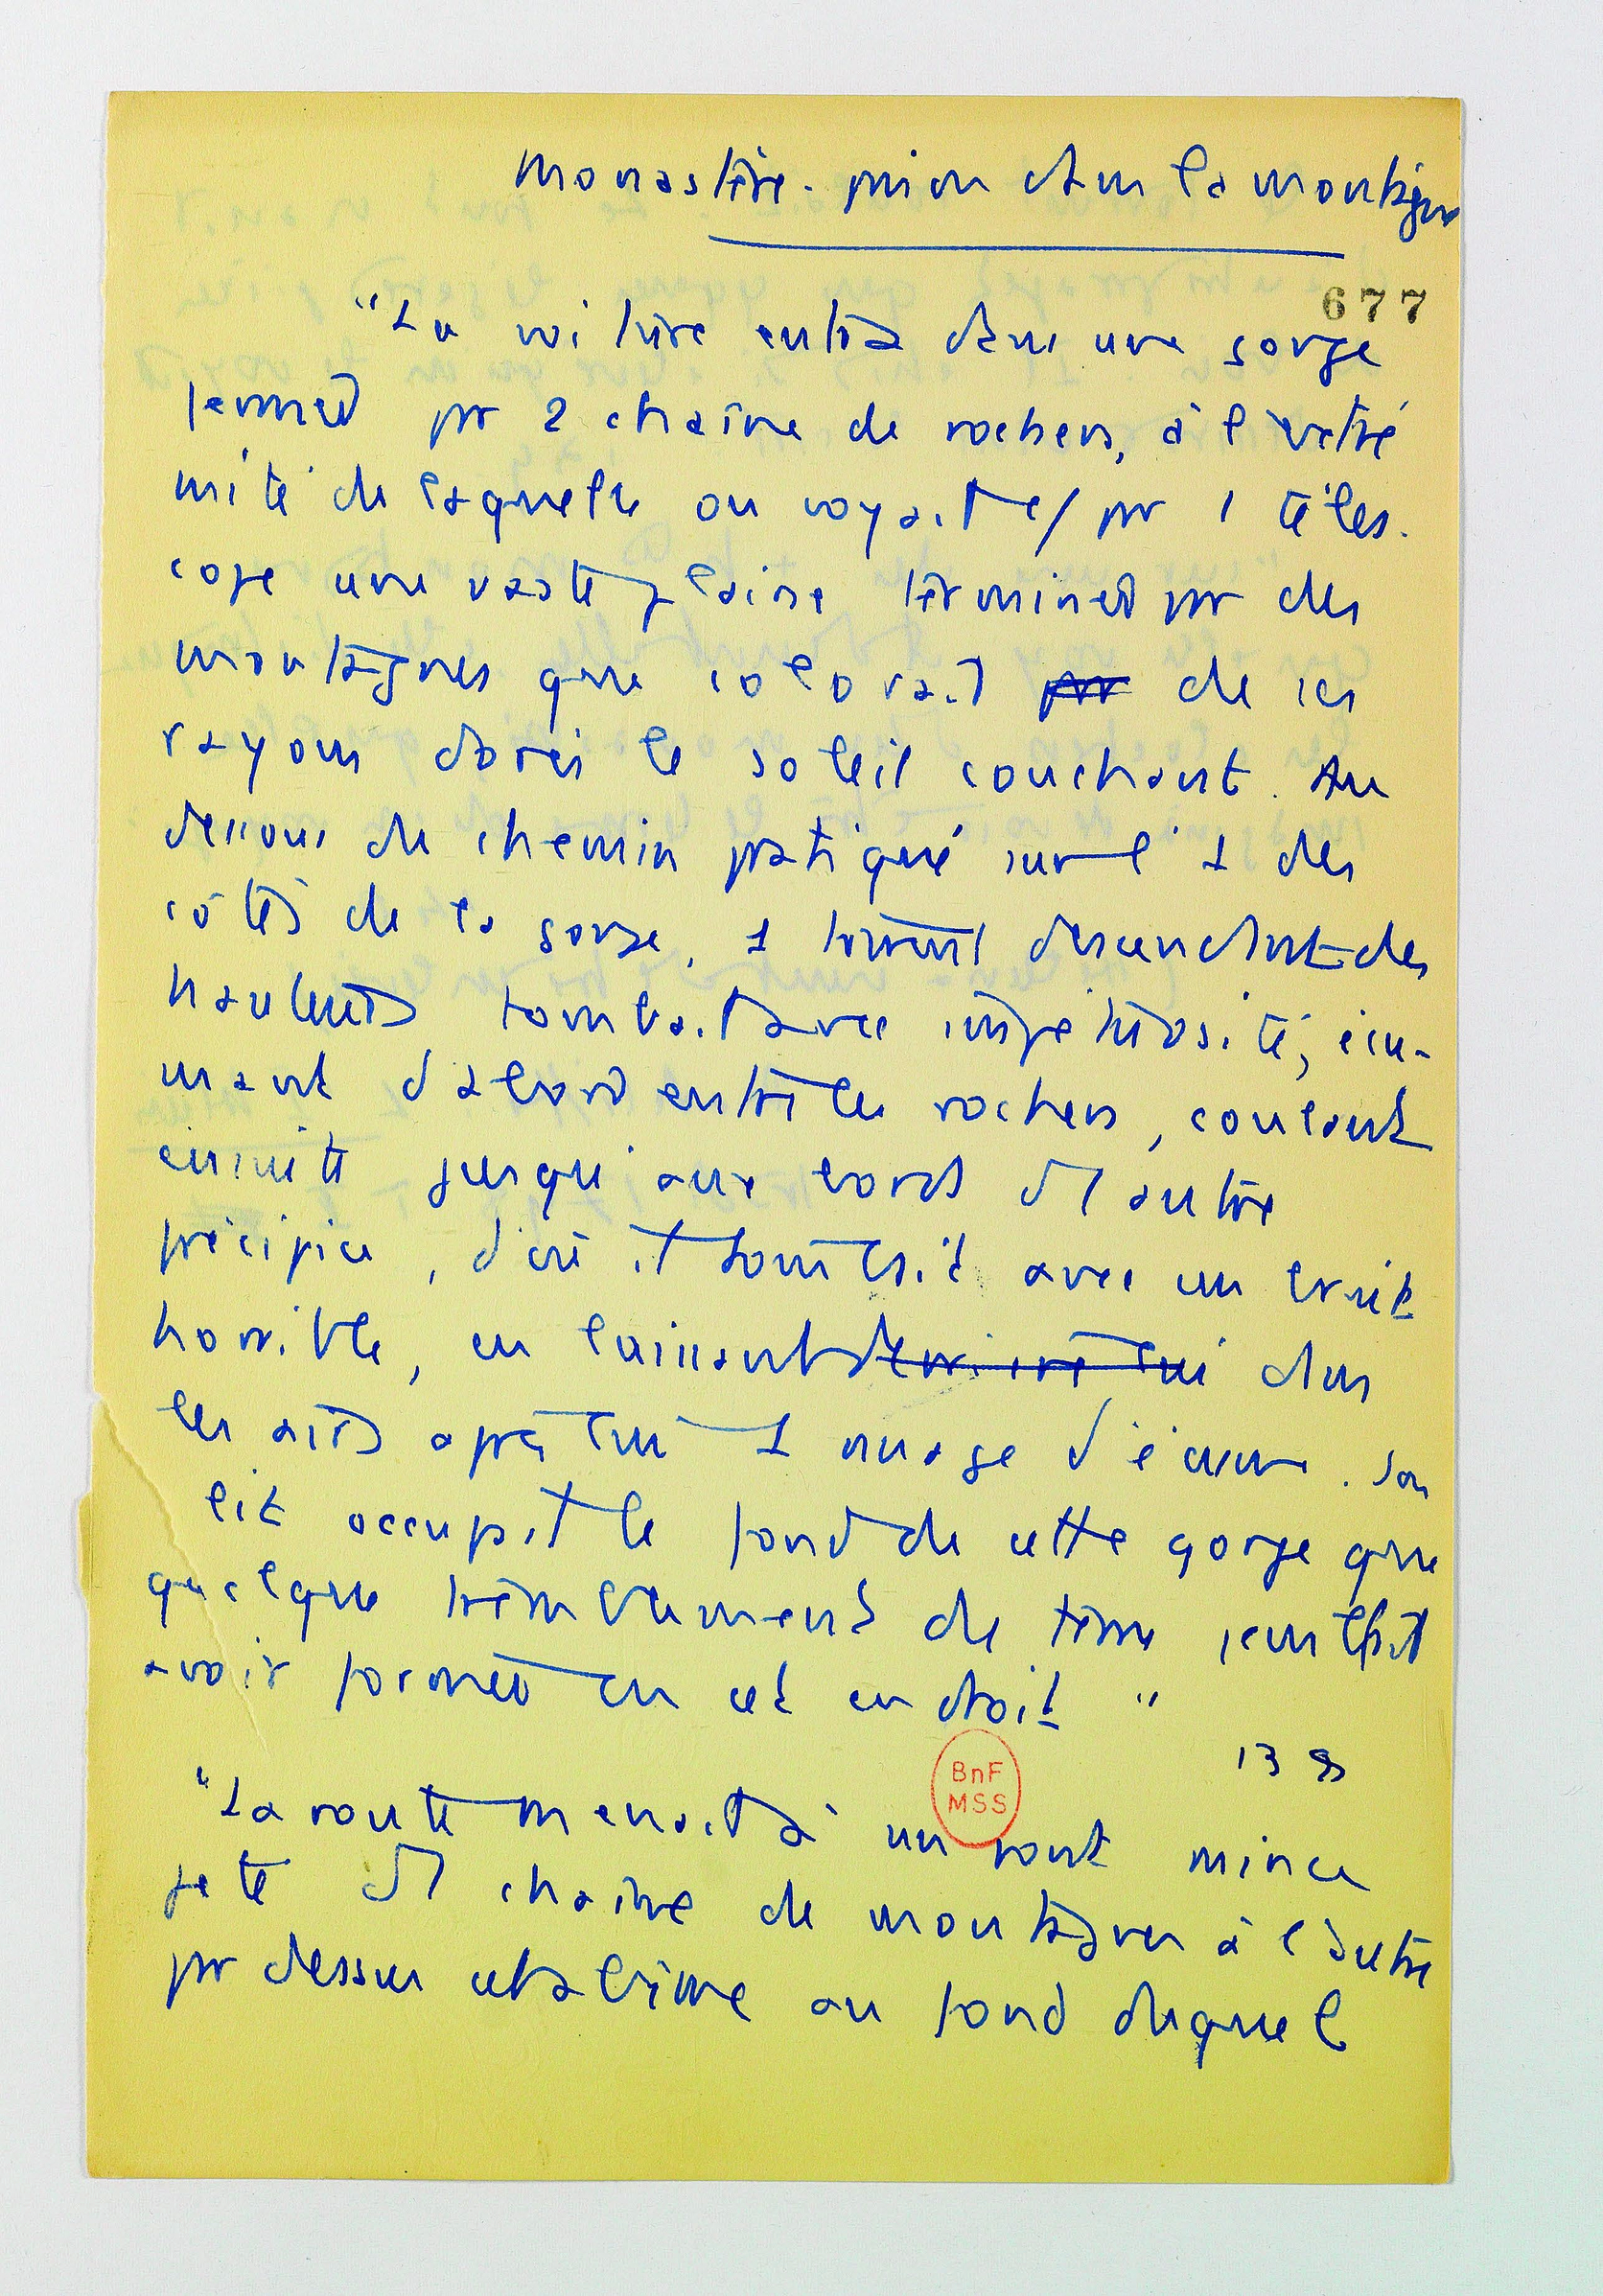 Monastère. prison dans la montagne
677
"La voiture entra dans une gorge
formée pr 2 chaîne de rochers, à l'extré
mité de laquelle on voyait c/ pr 1 téles.
cope une vaste plaine terminée pr des
montagnes que colorait pr de ses
rayons dorés le soleil couchant. Au
dessous du chemin pratiqué sur l'1 des
côtés de la gorge, 1 torrent descendant des
hauteurs tombait avec impétuosité, écu-
mant d'abord entre les rochers, coulant
ensuite jusqu'aux bords d'1 autre
précipice, d'où il tombait avec un bruit
horrible, en laissant derrière lui dans
les airs après lui 1 nuage d'écume. Son
lit occupait le fond de cette gorge que
quelque tremblement de terre semblait
avoir formée en cet endroit"
139
BnF
MSS
"La route menait à un pont mince
jeté d'1 chaine de montagnes à l'autre
pr dessus cet abîme au fond duquel